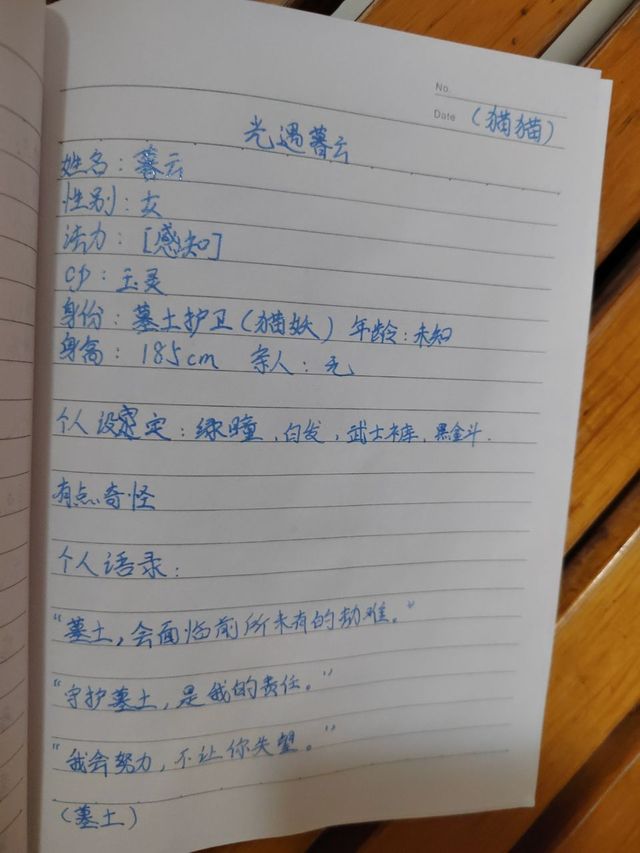 No.
Date （猫猫）
光遇暮云
姓名：暮云
性别：女
法力：［感知］
cp：玉灵
身份：墓土护卫（猫妖） 年龄：未知
身高：185cm 亲人：无
个人设定：绿瞳，白发，武士裤，黑金斗．
有点奇怪
个人语录：
“墓土，会面临前所未有的劫难。”
“守护墓土，是我的责任。”
“我会努力，不让你失望。”
（墓土）